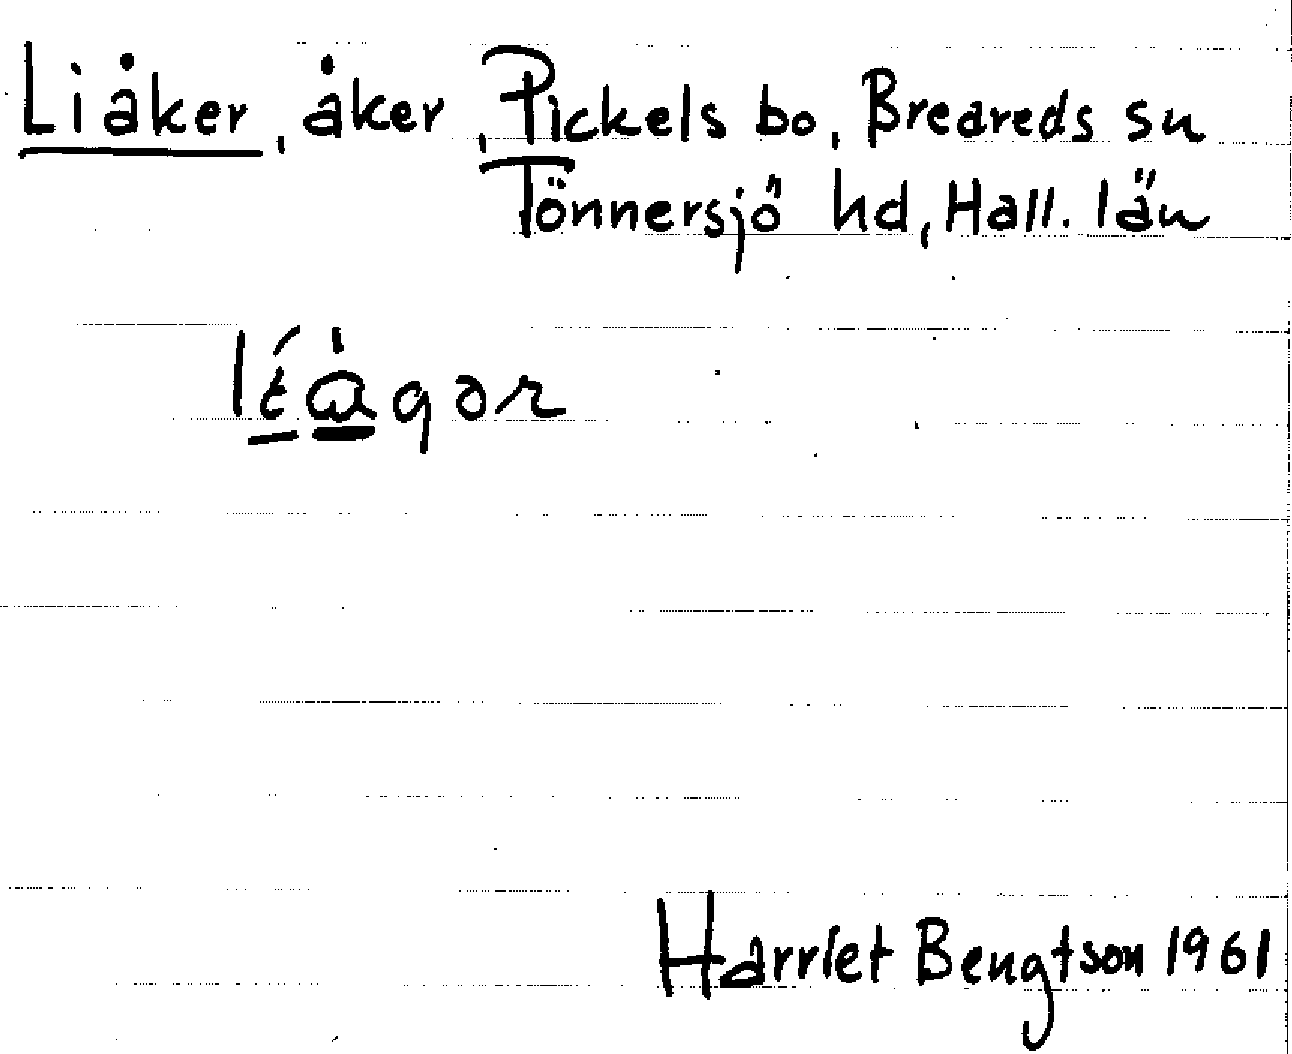 Liåker, åker, Pickels bo, Breareds sn
Tönnersjö hd, Hall. län
Harriet Bengtson 1961